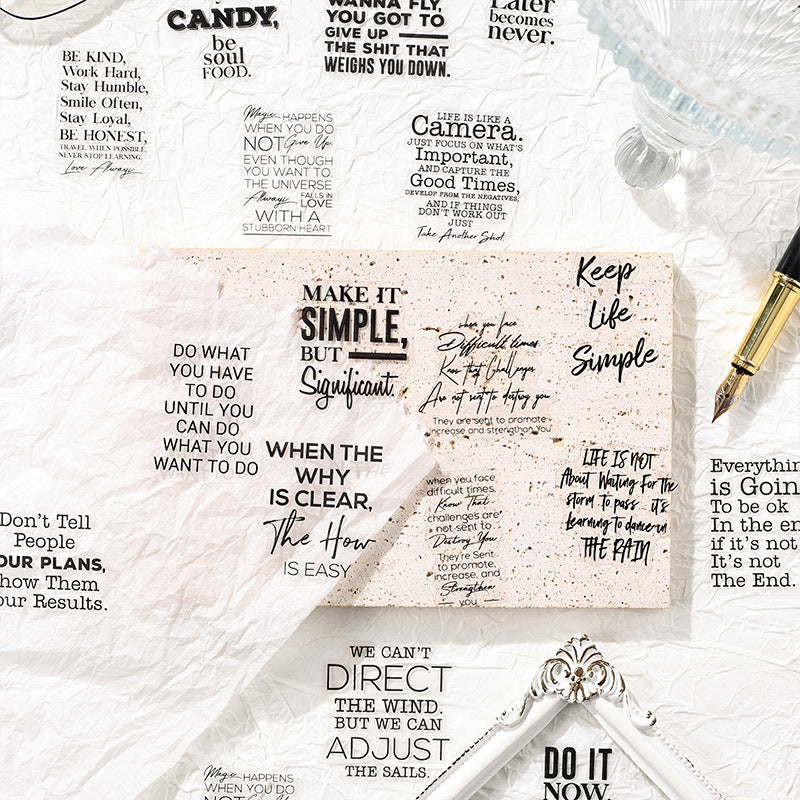 CANDY,
be
soul
FOOD.
WANNA FLY,
YOU GOT TO
GIVE UP
THE SHIT THAT
WEIGHS YOU DOWN.
Later
becomes
never.
BE KIND,
Work Hard,
Stay Humble,
Smile Often,
Stay Loyal,
BE HONEST,
TRAVEL WHEN POSSIBLE,
NEVER STOP LEARNING,
Love Always
Magic HAPPENS
WHEN YOU DO
NOT Give Up,
EVEN THOUGH
YOU WANT TO.
THE UNIVERSE
Always FALLS IN LOVE
WITH A
STUBBORN HEART
LIFE IS LIKE A
Camera.
JUST FOCUS ON WHAT'S
Important,
AND CAPTURE THE
Good Times,
DEVELOP FROM THE NEGATIVES,
AND IF THINGS
DON'T WORK OUT
JUST
Take Another Shot.
MAKE IT
SIMPLE,
BUT
Significant.
Keep
Life
Simple
DO WHAT
YOU HAVE
TO DO
UNTIL YOU
CAN DO
WHAT YOU
WANT TO DO
when you face
Difficult times
Know that Challenges
Are not sent to destroy you
They are sent to promote
increase and strengthan You
WHEN THE
WHY
IS CLEAR,
The How
IS EASY
when you face
difficult times,
Know That
challenges are
not sent to
Destroy You
They're Sent
to promote,
increase, and
Strengthen
you
LIFE IS NOT
About Waiting For the
storm to pass... it's
learning to dance in
THE RAIN
Everythin
is Goin
To be ok
In the en
if it's not
It's not
The End.
Don't Tell
People
OUR PLANS,
how Them
our Results.
WE CAN'T
DIRECT
THE WIND.
BUT WE CAN
ADJUST
THE SAILS.
Magic HAPPENS
WHEN YOU DO
NOT Give Up
DO IT
NOW.